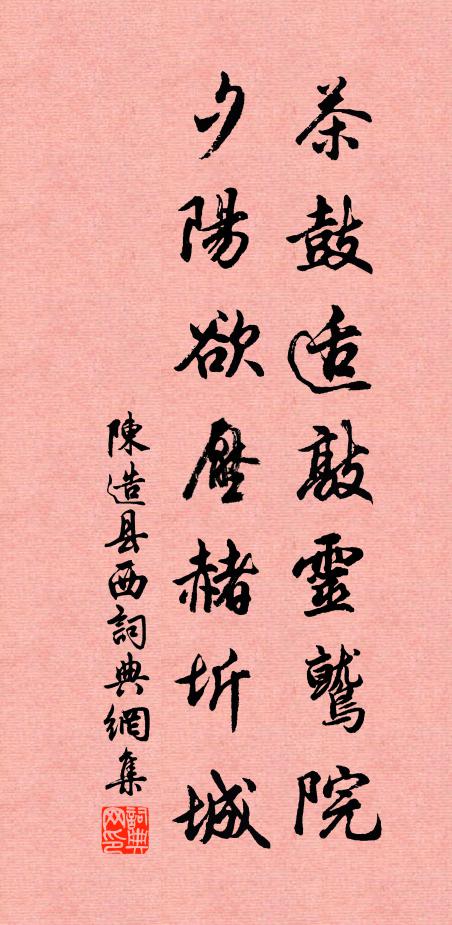 茶鼓适敲靈鷲院
夕陽欲壓赭圻城
陳造县西詞典網集
詞典网印